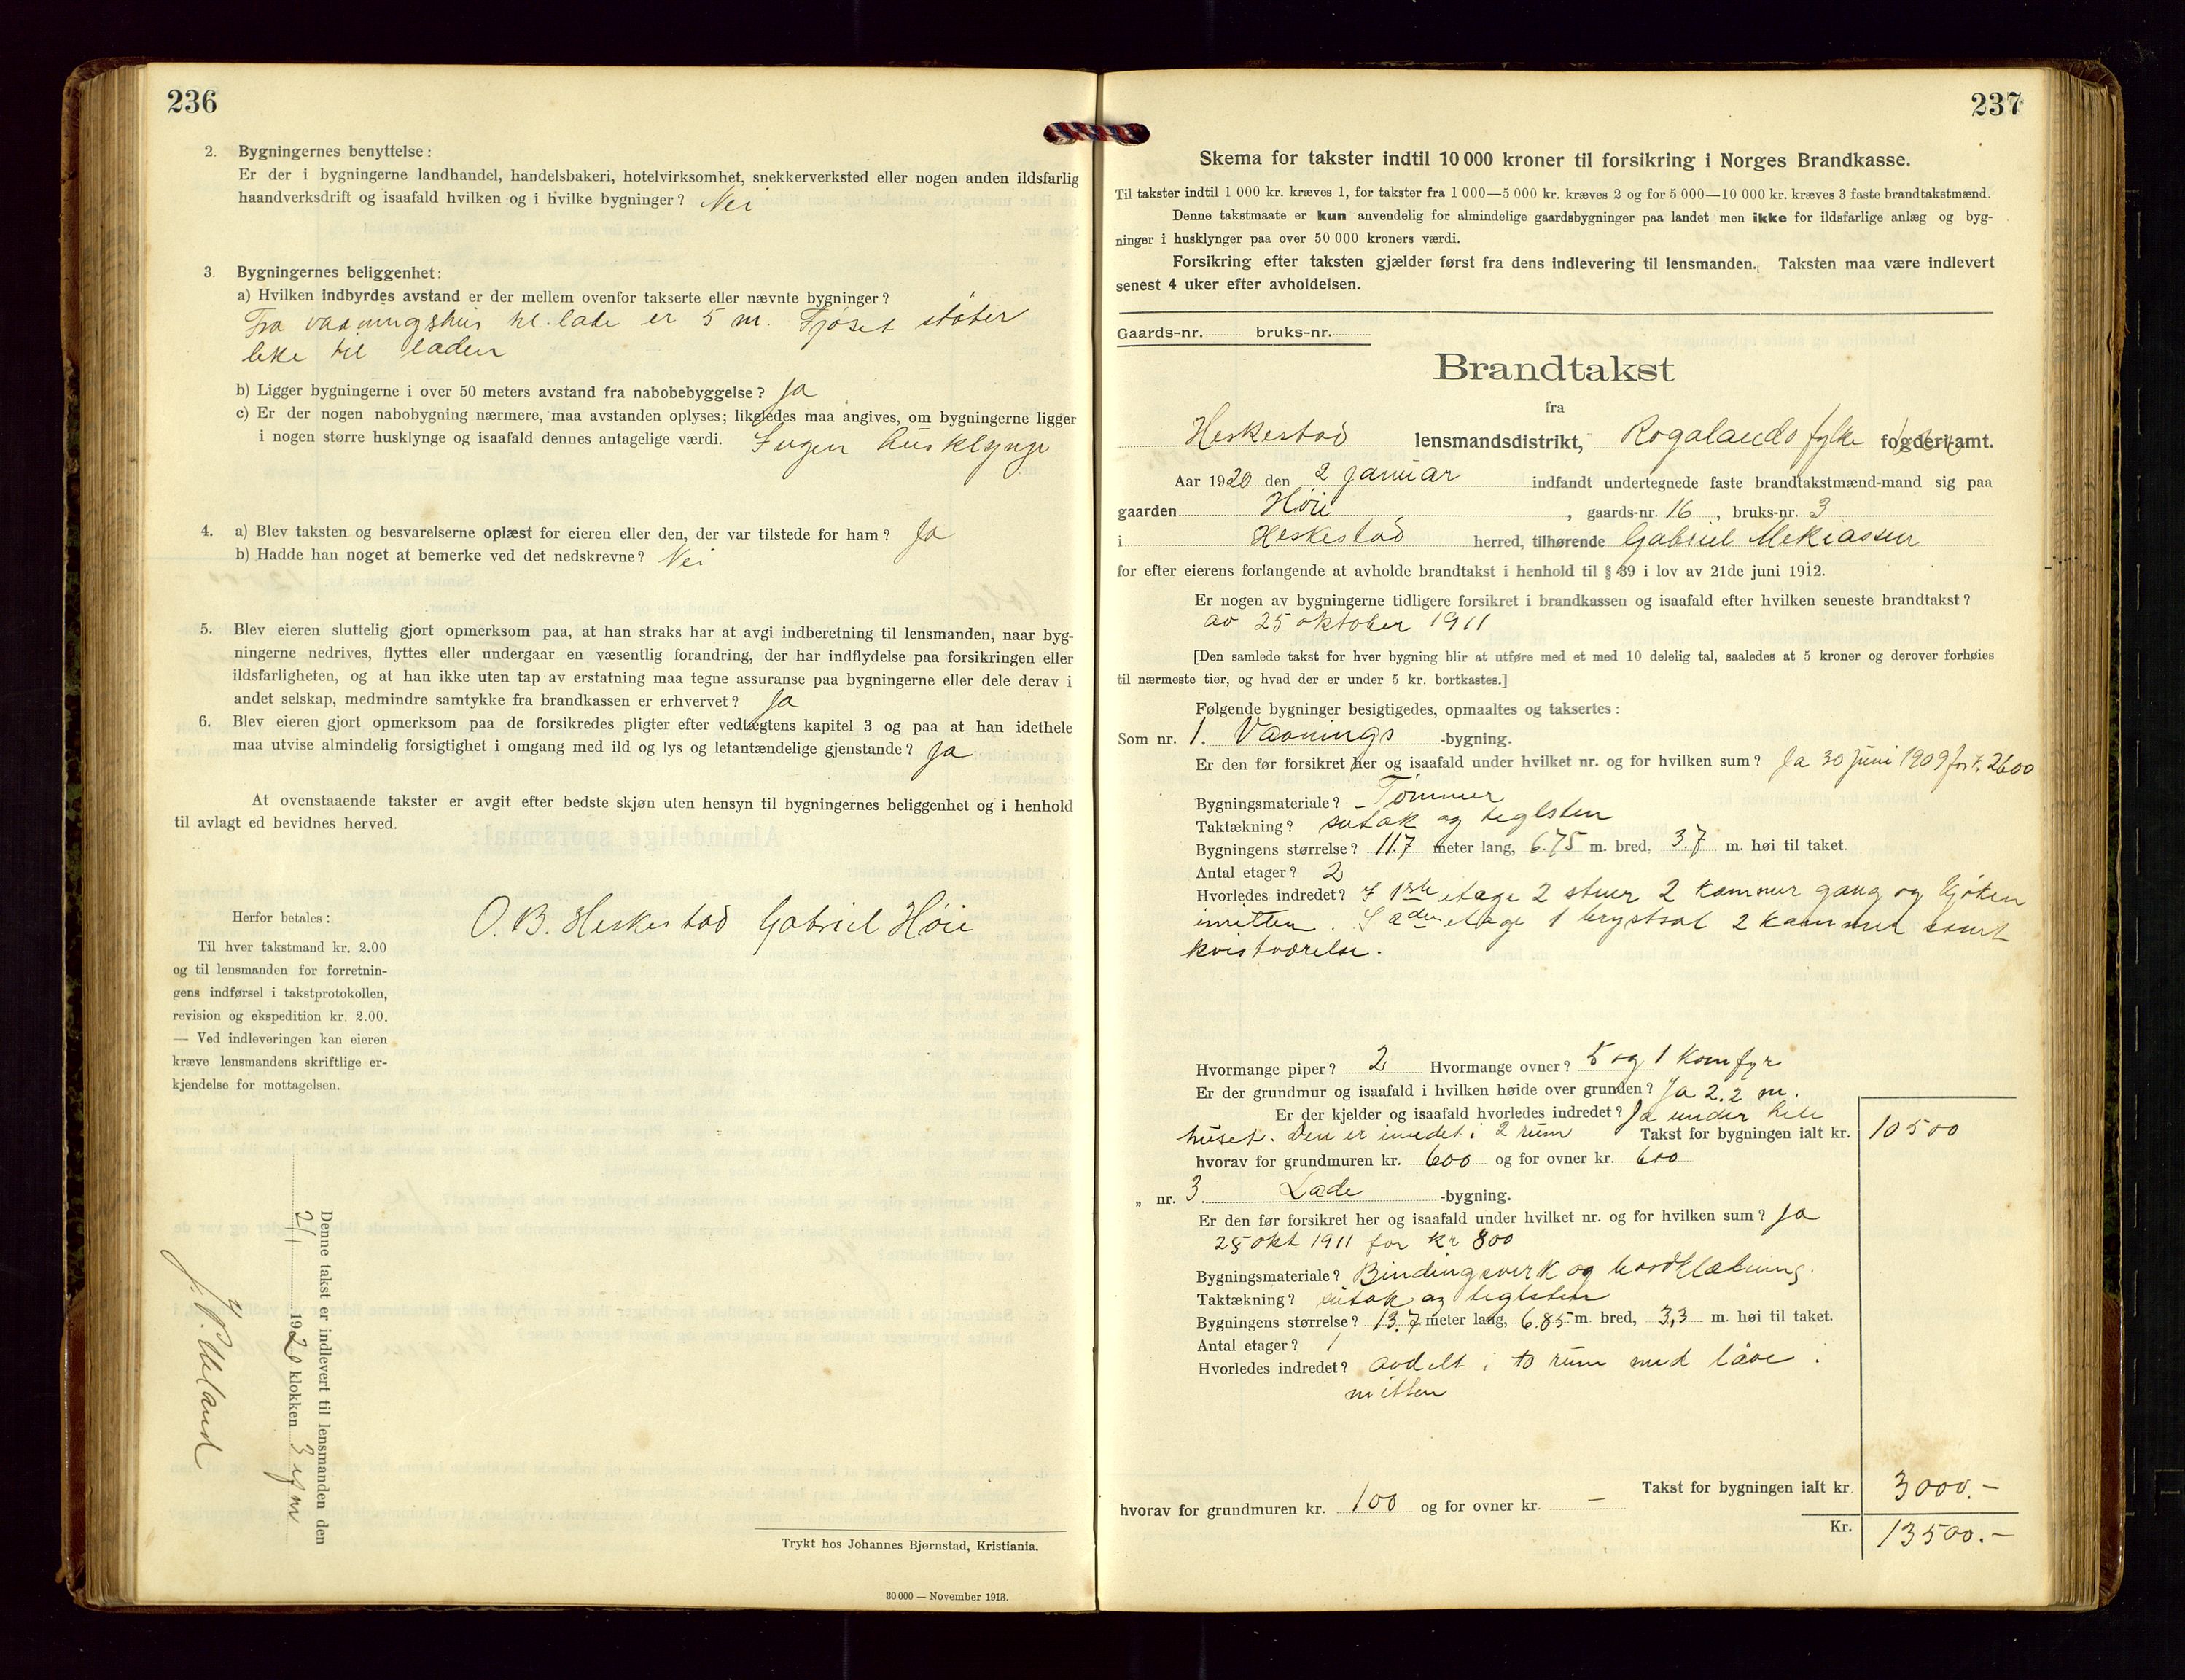 236
2. Bygningernes benyttelse:
Er der i bygningerne landhandel, handelsbakeri, hotelvirksomhet, snekkerverksted eller nogen anden ildsfarlig
haandverksdrift og isaafald hvilken og i hvilke bygninger? Nei
3. Bygningernes beliggenhet:
a) Hvilken indbyrdes avstand er der mellem ovenfor takserte eller nævnte bygninger?
Fra vaaningshus til lade er 5 m. Fjøset støter
like til laden
b) Ligger bygningerne i over 50 meters avstand fra nabobebyggelse? Ja
c) Er der nogen nabobygning nærmere, maa avstanden oplyses; likeledes maa angives, om bygningerne ligger
i nogen større husklynge og isaafald dennes antagelige værdi. Ingen husklynge
4. a) Blev taksten og besvarelserne oplæst for eieren eller den, der var tilstede for ham? Ja
b) Hadde han noget at bemerke ved det nedskrevne? Nei
5. Blev eieren sluttelig gjort opmerksom paa, at han straks har at avgi indberetning til lensmanden, naar byg-
ningerne nedrives, flyttes eller undergaar en væsentlig forandring, der har indflydelse paa forsikringen eller
ildsfarligheten, og at han ikke uten tap av erstatning maa tegne assuranse paa bygningerne eller dele derav i
andet selskap, medmindre samtykke fra brandkassen er erhvervet? Ja
6. Blev eieren gjort opmerksom paa de forsikredes pligter efter vedtægtens kapitel 3 og paa at han idethele
maa utvise almindelig forsigtighet i omgang med ild og lys og letantændelige gjenstande? Ja
At ovenstaaende takster er avgit efter bedste skjøn uten hensyn til bygningernes beliggenhet og i henhold
til avlagt ed bevidnes herved.
O. B. Heskestad Gabriel Høie
Herfor betales:
Til hver takstmand kr. 2.00
og til lensmanden for forretnin-
gens indførsel i takstprotokollen,
revision og ekspedition kr. 2.00.
— Ved indleveringen kan eieren
kræve lensmandens skriftlige er-
kjendelse for mottagelsen.
Denne takst er indlevert til lensmanden den
2/1 1920 klokken 3 efm
Trykt hos Johannes Bjørnstad, Kristiania.
30 000 — November 1913.
237
Skema for takster indtil 10 000 kroner til forsikring i Norges Brandkasse.
Til takster indtil 1 000 kr. kræves 1, for takster fra 1 000—5 000 kr. kræves 2 og for 5 000—10 000 kr. kræves 3 faste brandtakstmænd.
Denne takstmaate er kun anvendelig for almindelige gaardsbygninger paa landet men ikke for ildsfarlige anlæg og byg-
ninger i husklynger paa over 50 000 kroners værdi.
Forsikring efter taksten gjælder først fra dens indlevering til lensmanden. Taksten maa være indlevert
senest 4 uker efter avholdelsen.
Gaards-nr. bruks-nr.
Brandtakst
fra
Heskestad lensmandsdistrikt, Rogalands fylke fogderi amt.
Aar 1920 den 2 januar indfandt undertegnede faste brandtakstmænd-mand sig paa
gaarden Høie, gaards-nr. 16, bruks-nr. 3
i Heskestad herred, tilhørende Gabriel Mekiassen
for efter eierens forlangende at avholde brandtakst i henhold til § 39 i lov av 21de juni 1912.
Er nogen av bygningerne tidligere forsikret i brandkassen og isaafald efter hvilken seneste brandtakst?
av 25 oktober 1911
[Den samlede takst for hver bygning blir at utføre med et med 10 delelig tal, saaledes at 5 kroner og derover forhøies
til nærmeste tier, og hvad der er under 5 kr. bortkastes.]
Følgende bygninger besigtigedes, opmaaltes og taksertes:
Som nr. 1. Vaanings-bygning.
Er den før forsikret her og isaafald under hvilket nr. og for hvilken sum? Ja 30 juni 1909 for kr. 2600
Bygningsmateriale? Tømmer
Taktækning? sutak og teglsten
Bygningens størrelse? 11.7 meter lang, 6.75 m. bred, 3.7 m. høi til taket.
Antal etager? 2
Hvorledes indredet? I 1ste etage 2 stuer 2 kammer gang og kjøken
imitten. I 2den etage 1 brystsal 2 kammer samt
kvistværelse.
Hvormange piper? 2 Hvormange ovner? 5 og 1 komfyr
Er der grundmur og isaafald i hvilken høide over grunden? Ja 2.2 m.
Er der kjelder og isaafald hvorledes indredet? Ja under hele
huset. Den er inredet i 2 rum Takst for bygningen ialt kr. 10500
hvorav for grundmuren kr. 600 og for ovner kr. 600
„ nr. 3. Lade-bygning.
Er den før forsikret her og isaafald under hvilket nr. og for hvilken sum? Ja
25 okt 1911 for kr 800
Bygningsmateriale? Bindingsverk og bordklædning.
Taktækning? sutak og teglsten
Bygningens størrelse? 13.7 meter lang, 6.85 m. bred, 3,3 m. høi til taket.
Antal etager? 1
Hvorledes indredet? avdelt i to rum med låve i
mitten
Takst for bygningen ialt kr. 3000.-
hvorav for grundmuren kr. 100 og for ovner kr. —
Kr. 13500.-